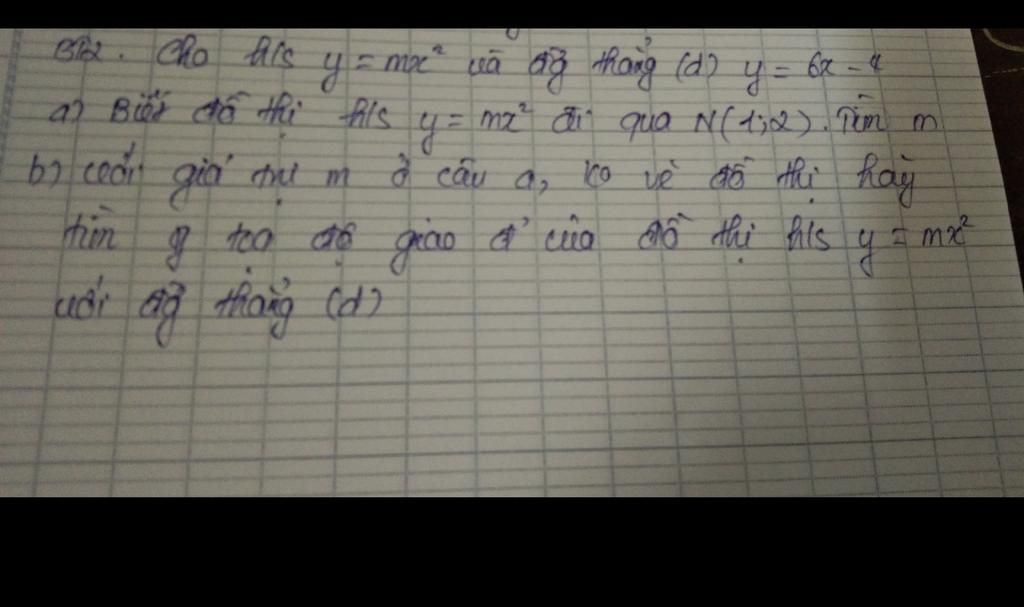 BT2. Cho h/s y = mx² và đg thẳng (d) y = 6x - 4
a) Biết đồ thị h/s y = mx² đi qua N(1;2). Tìm m
b) với giá trị m ở câu a, ko vẽ đồ thị hãy
tìm tọa độ giao đ' của đồ thị h/s y = mx²
với đg thẳng (d)